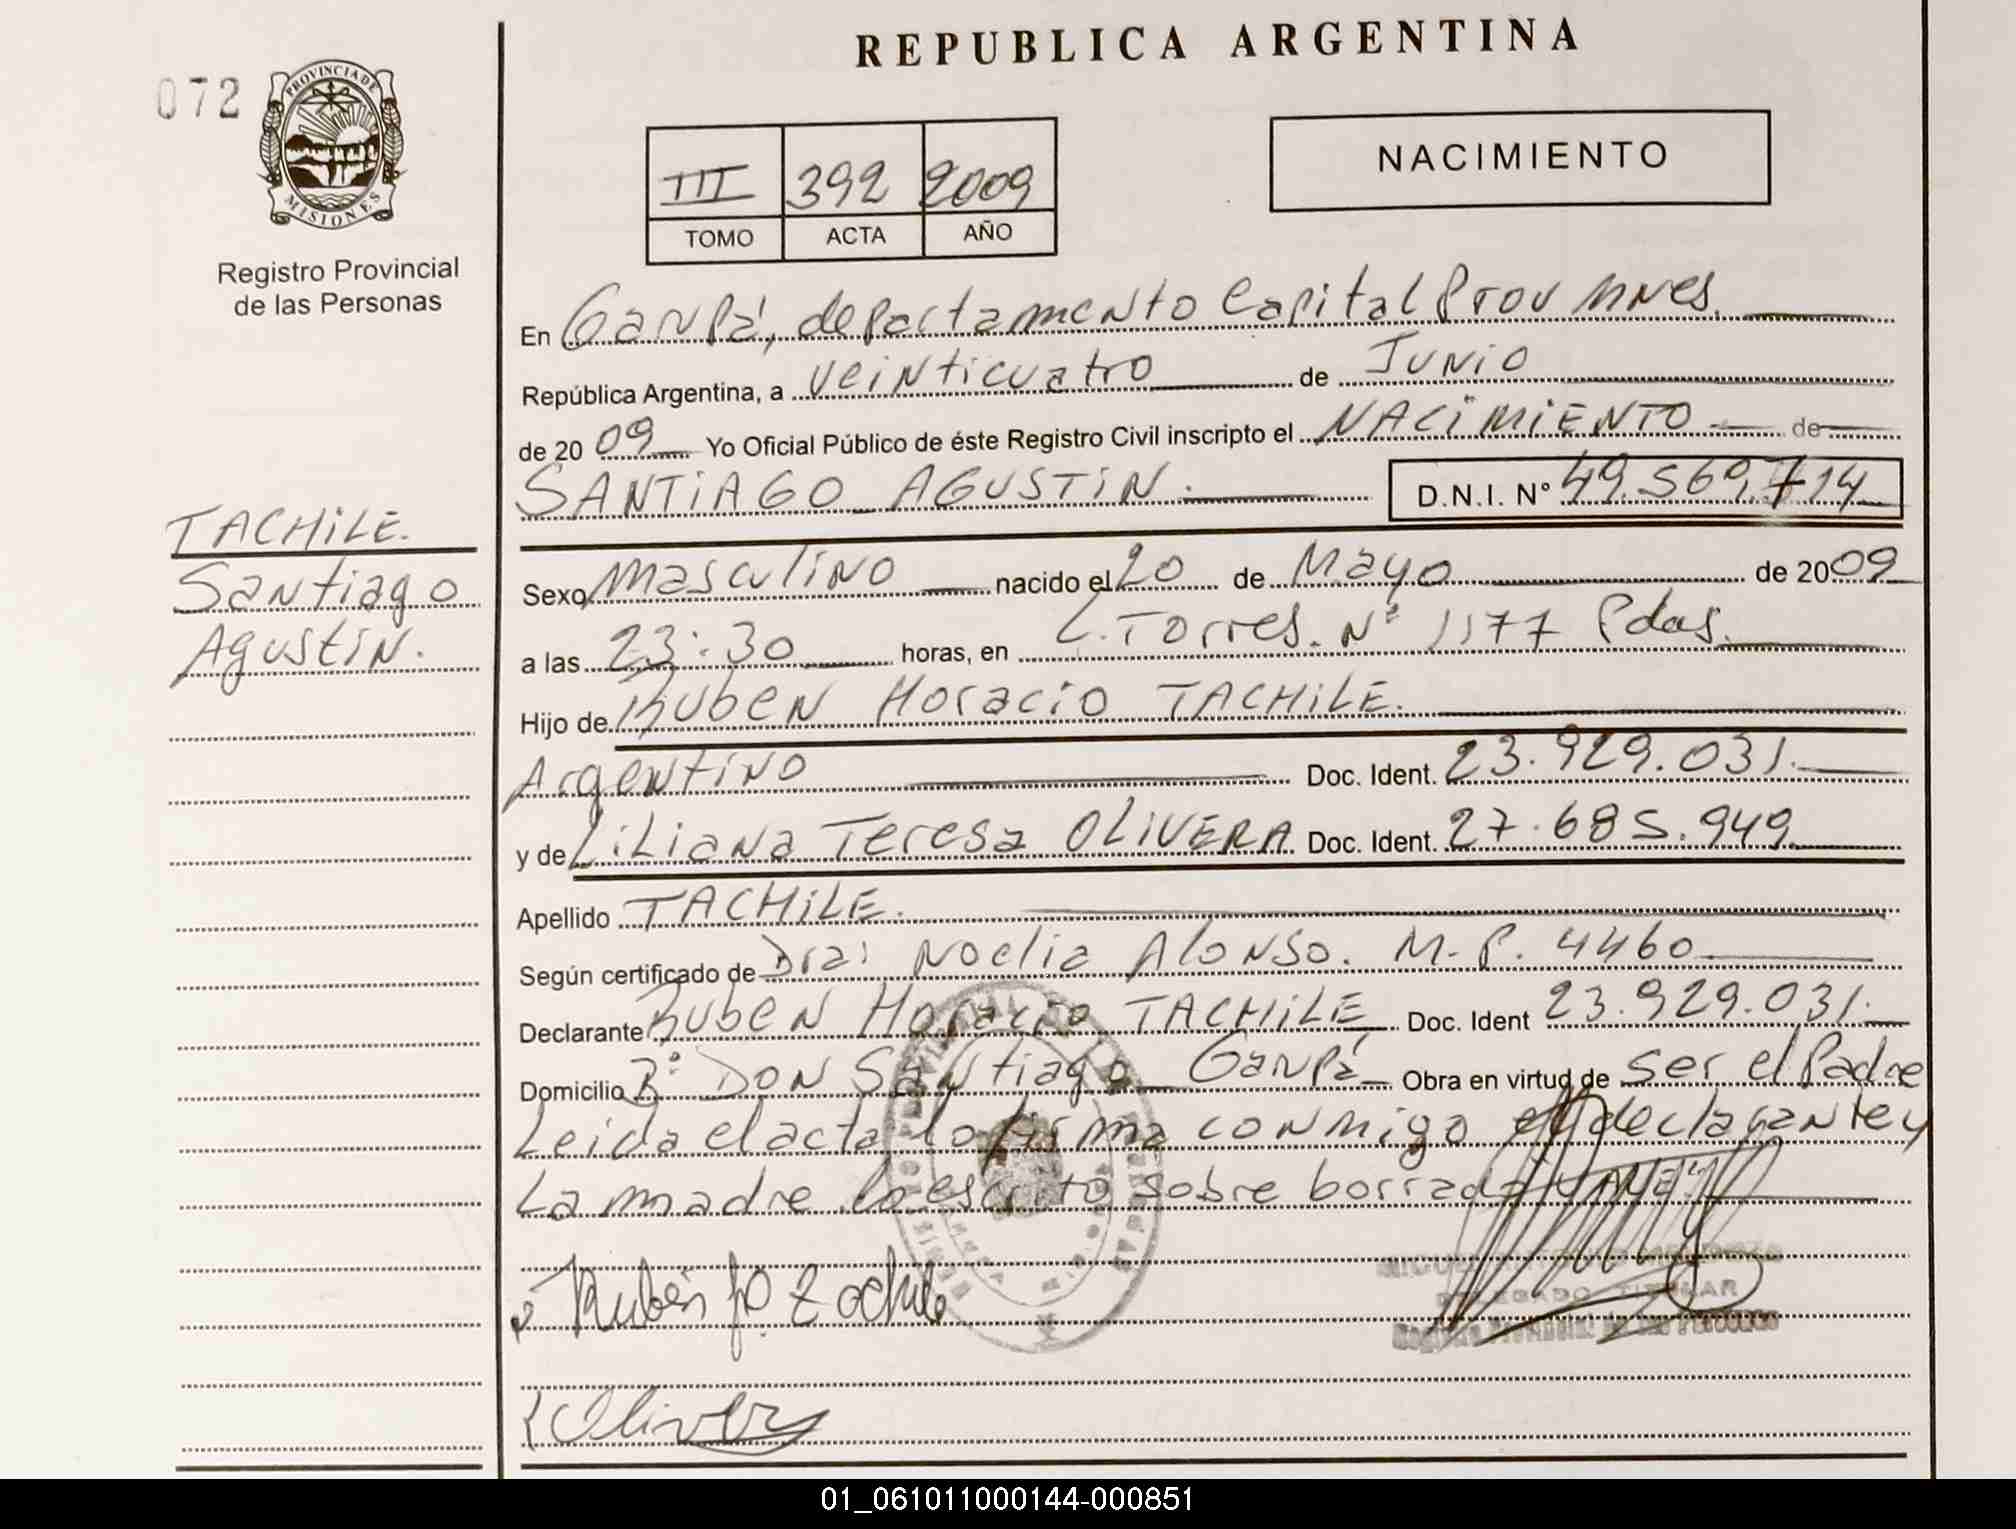 REPUBLICA ARGENTINA
072
PROVINCIA DE
MISIONES
Registro Provincial
de las Personas
III 392 2009
TOMO ACTA AÑO
NACIMIENTO
En Garupá, departamento Capital Prov Mnes.
República Argentina, a veinticuatro de Junio
de 2009 Yo Oficial Público de éste Registro Civil inscripto el NACIMIENTO de
SANTIAGO AGUSTIN. D.N.I. Nº 49.569.714
TACHILE.
Santiago
Agustin.
Sexo Masculino nacido el 20 de Mayo de 2009
a las 23:30 horas, en L. Torres. Nº 1177 Pdas.
Hijo de Ruben Horacio TACHILE.
Argentino Doc. Ident. 23.929.031.
y de Liliana Teresa OLIVERA Doc. Ident. 27.685.949
Apellido TACHILE.
Según certificado de Dra: Noelia Alonso. M.P. 4460
Declarante Ruben Horacio TACHILE Doc. Ident 23.929.031.
Domicilio Bº Don Santiago Garupá Obra en virtud de ser el Padre
Leida el acta lo firma conmigo el declarante y
La madre lo escrito sobre borrado
Rubén H. Tachile
DELEGADO TITULAR
Registro Provincial de las Personas
Olivera
01_061011000144-000851